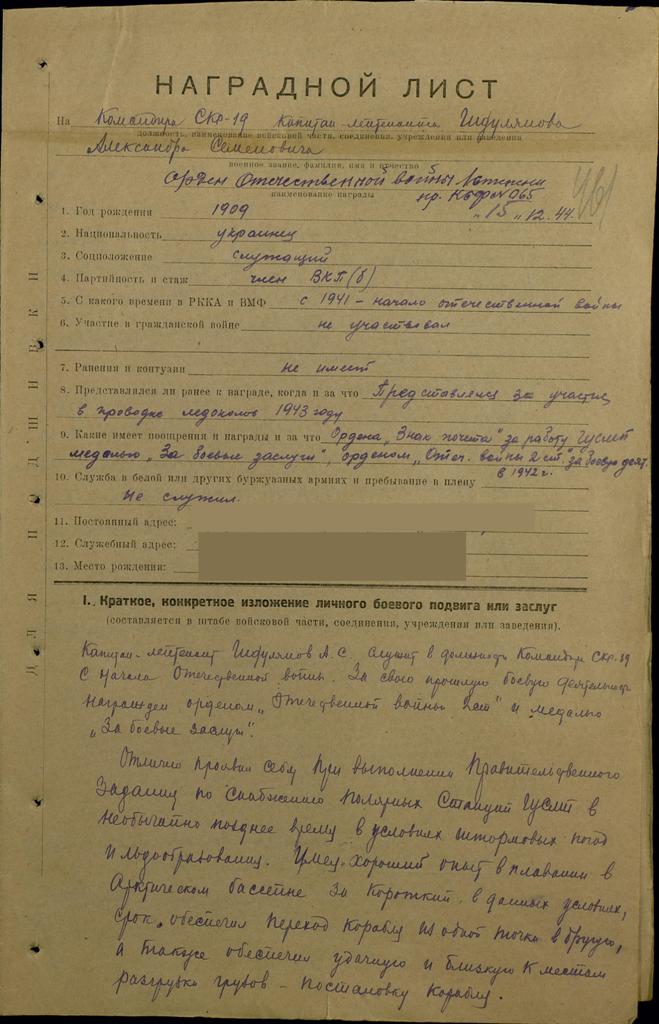 НАГРАДНОЙ ЛИСТ
На Командира СКР-19 капитан-лейтенанта Гидулянова
должность, наименование войсковой части, соединения, учреждения или заведения
Александра Семеновича
военное звание, фамилия, имя и отчество
орден Отечественной войны
наименование награды
пр. № 065
"15" 12.44.
1. Год рождения 1909
2. Национальность украинец
3. Соцположение служащий
4. Партийность и стаж член ВКП(б)
5. С какого времени в РККА и ВМФ с 1941 - начало отечественной войны
6. Участие в гражданской войне не участвовал
7. Ранения и контузии не имеет
8. Представлялся ли ранее к награде, когда и за что Представлялся за участие
в проводке ледоколов 1943 году
9. Какие имеет поощрения и награды и за что Ордена „Знак почета" за работу ГУСМП
медалью „За боевые заслуги", орденом „Отеч. войны 2 ст." за боевую деят.
в 1942 г.
10. Служба в белой или других буржуазных армиях и пребывание в плену
Не служил.
11. Постоянный адрес:
12. Служебный адрес:
13. Место рождения:
I. Краткое, конкретное изложение личного боевого подвига или заслуг
(составляется в штабе войсковой части, соединения, учреждения или заведения).
Капитан-лейтенант Гидулянов А.С. служит в должности Командира СКР-19
с начала Отечественной войны. За свою прошлую боевую деятельность
награжден орденом „Отечественной войны 2 ст" и медалью
„За боевые заслуги".
Отлично проявил себя при выполнении Правительственного
Задания по снабжению полярных станций ГУСМП в
необычайно позднее время в условиях штормовых погод
и льдообразования. Имея хороший опыт в плавании в
Арктическом бассейне за короткий, в данных условиях,
срок, обеспечил переход корабля из одной точки в другую,
а также обеспечил удачную и близкую к местам
разгрузки грузов - постановку корабля.
ДЛЯ ПОДШИВКИ